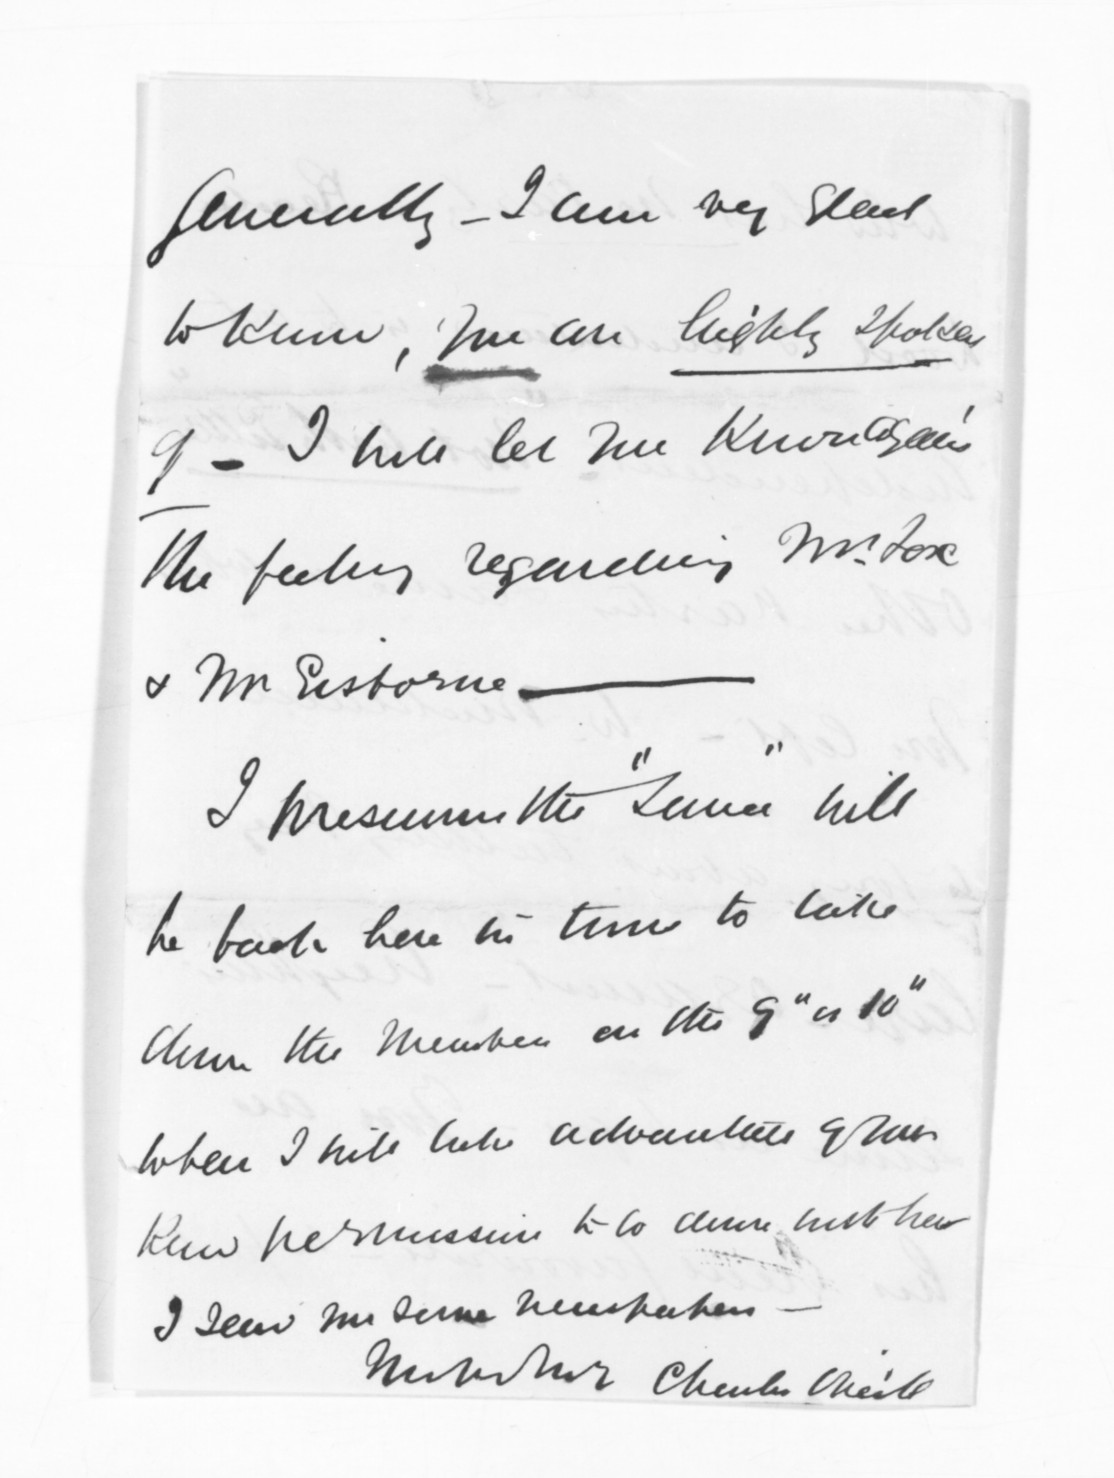 generally – I am very glad
to know, you are highly spoken
of – I will let you know again
the feeling regarding Mr. Fox
& Mr Gisborne
I presume the "Luna" will
be back here in time to take
down the Members on the 9" or 10"
when I will take advantage of your
kind permission to go down with her
I send you some newspapers –
Charles Heaphy